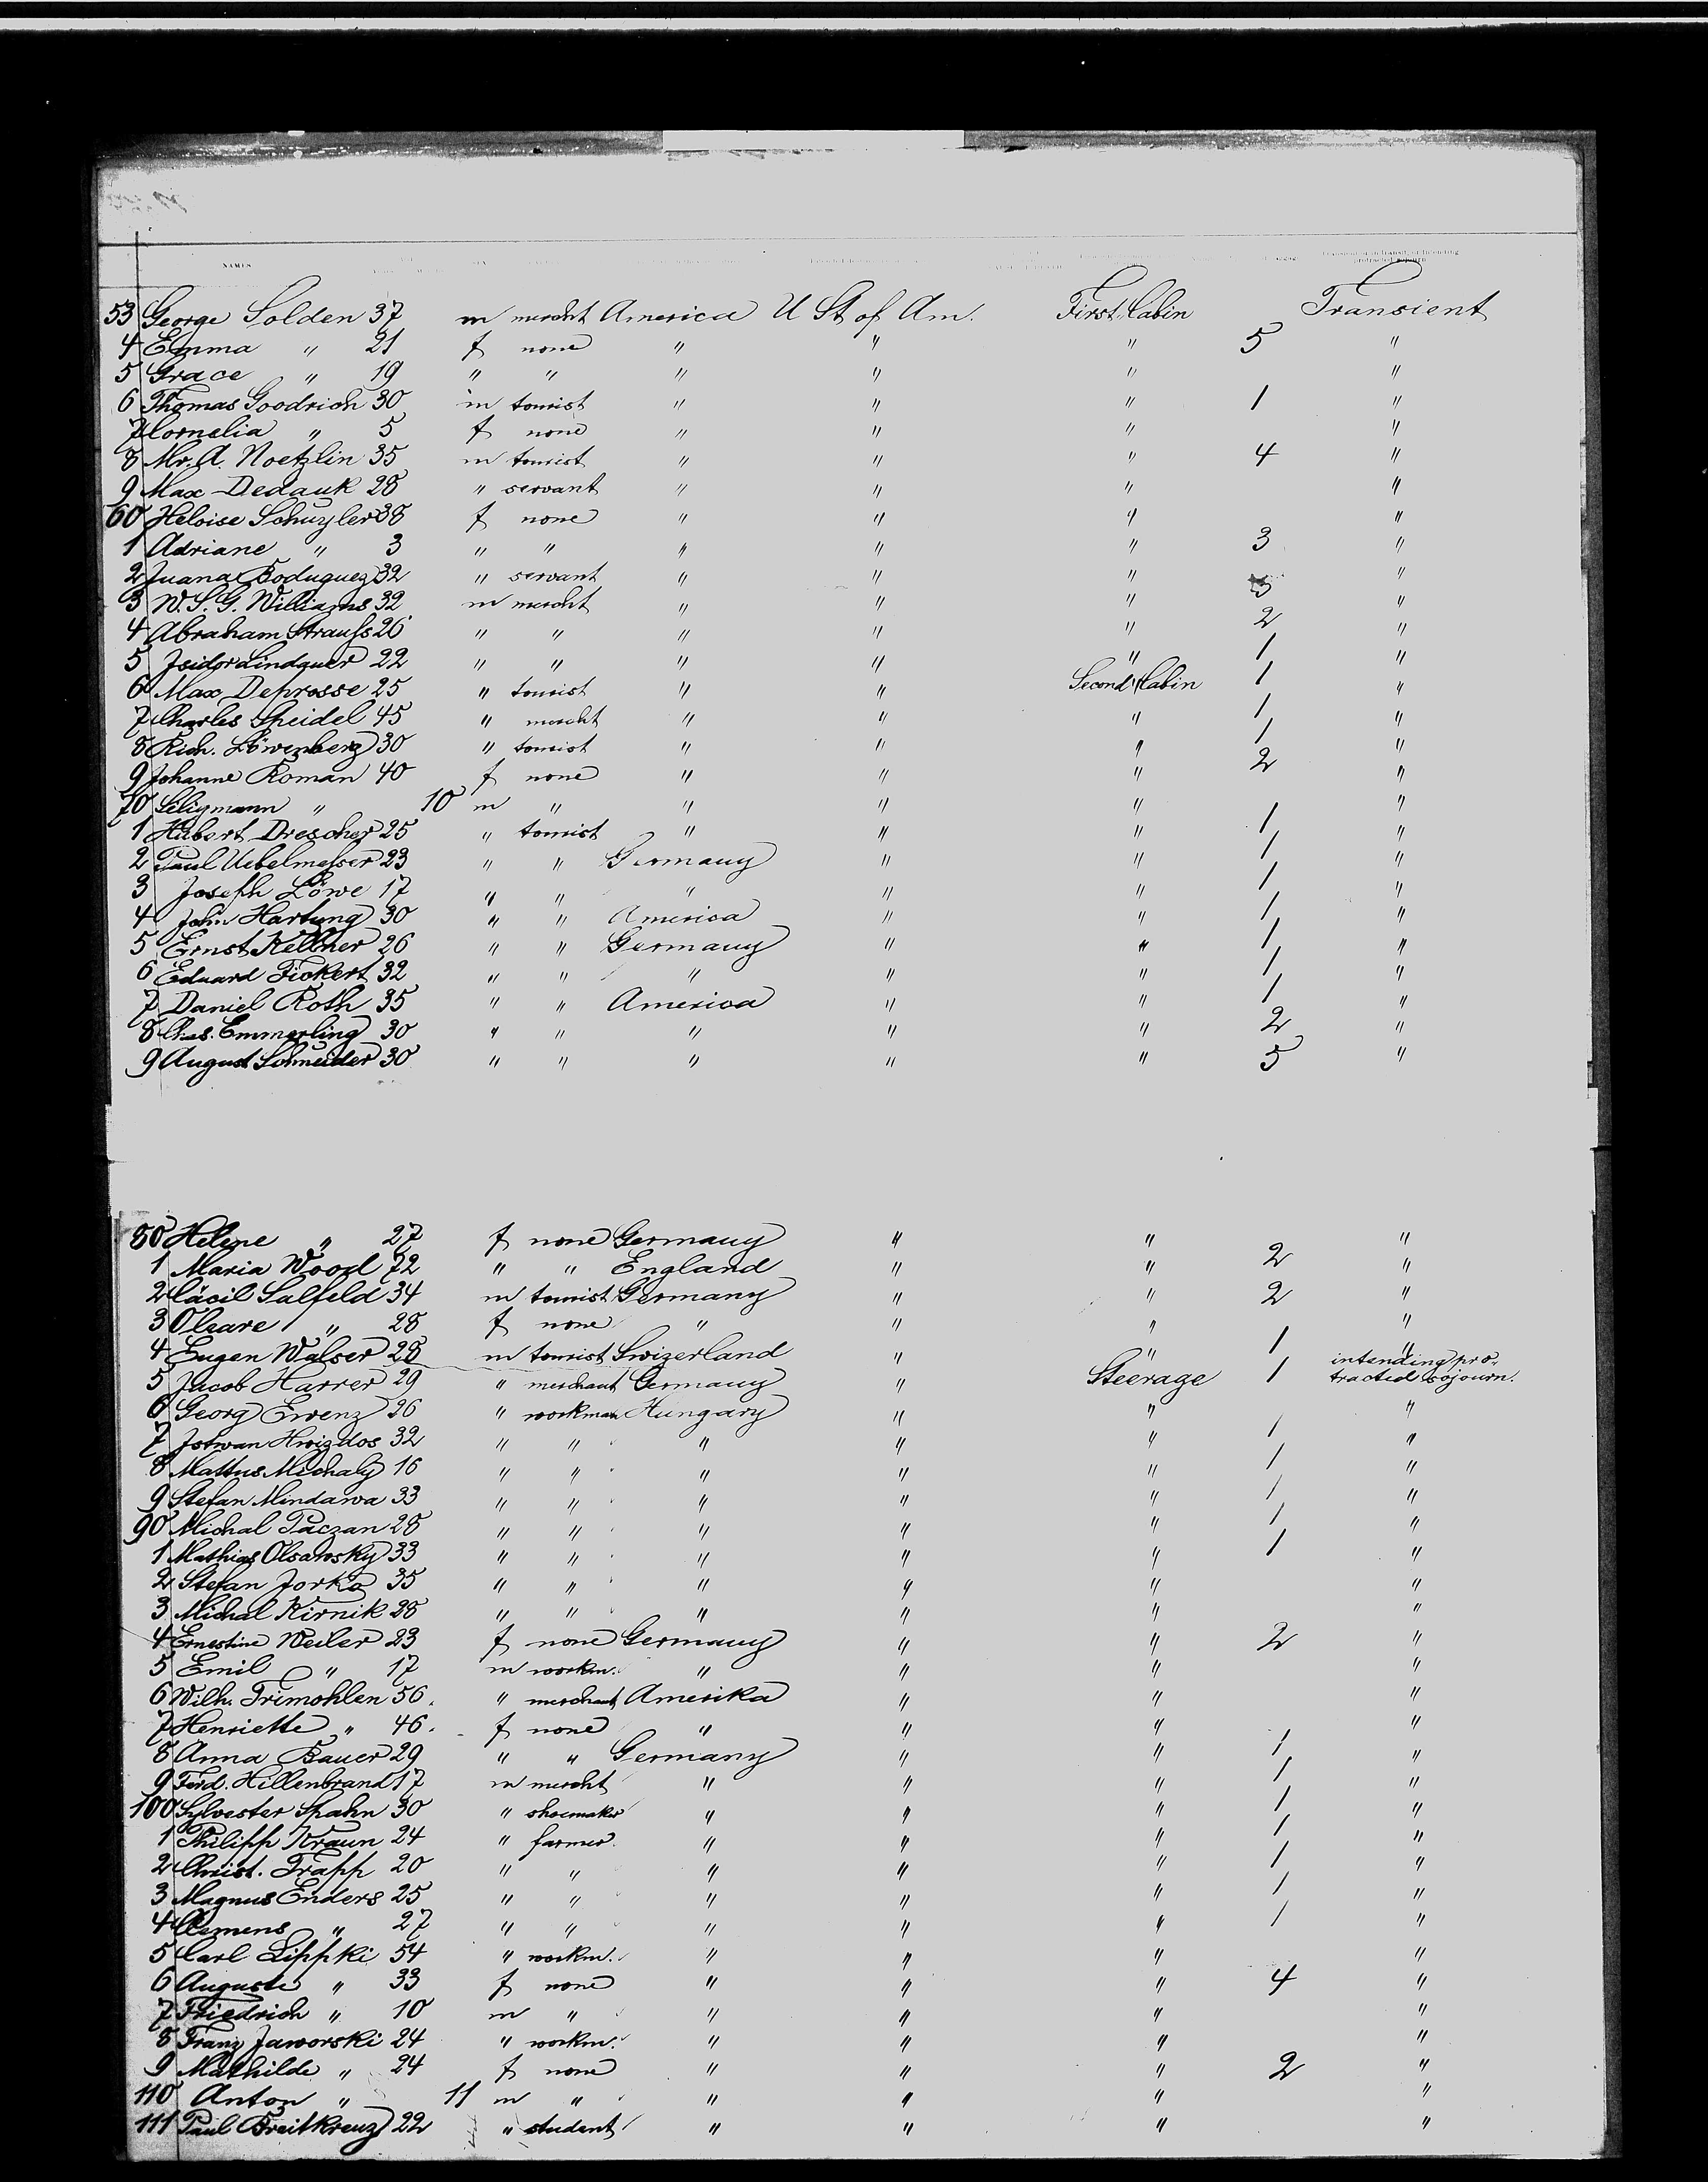 NAMES
protracted sojourn
53 George Solden 37 m mercht America U St of Am. First Cabin Transient
4 Emma " 21 f none " " " 5 "
5 Grace " 19 " " " " " "
6 Thomas Goodrich 30 m tourist " " " 1 "
7 Cornelia " 5 f none " " " "
8 Mr. A. Noetzlin 35 m tourist " " " 4 "
9 Max Dedauk 28 " servant " " " "
60 Heloise Schuyler 38 f none " " " "
1 Adriane " 3 " " " " " 3 "
2 Juana Boduguez 32 " servant " " " "
3 W. S. G. Williams 32 m mercht " " " 3 "
4 Abraham Strauss 26 " " " " " 2 "
5 Isidor Lindauer 22 " " " " " 1 "
6 Max Deprosse 25 " tourist " " Second Cabin 1 "
7 Charles Speidel 45 " mercht " " " 1 "
8 Rich. Löwenberg 30 " tourist " " " 1 "
9 Johanne Roman 40 f none " " " 2 "
70 Seligmann " 10 m " " " " "
1 Hubert Drescher 25 " tourist " " " 1 "
2 Paul Uebelmesser 23 " " Germany " " 1 "
3 Joseph Löwe 17 " " " " " 1 "
4 John Hartung 30 " " America " " 1 "
5 Ernst Kellner 26 " " Germany " " 1 "
6 Eduard Fickert 32 " " " " " 1 "
7 Daniel Roth 35 " " America " " 1 "
8 Chas. Emmerling 30 " " " " " 2 "
9 August Schneider 30 " " " " " 5 "
80 Helene " 27 f none Germany " " "
1 Maria Wood 72 " " England " " 2 "
2 Cäcil Salfeld 34 m tourist Germany " " 2 "
3 " 28 f none " " " "
4 Eugen Walser 28 m tourist Swizerland " " 1 "
5 Jacob Harrer 29 " merchant Germany " Steerage 1 intending pro-
tracted sojourn.
6 Georg Ewenz 26 " workman Hungary " " "
7 Istwan Hwizdos 32 " " " " " 1 "
8 Mattus Michaly 16 " " " " " 1 "
9 Stefan Mindawa 33 " " " " " 1 "
90 Michal Paczan 28 " " " " " 1 "
1 Mathias Olsawsky 33 " " " " " 1 "
2 Stefan Jorko 35 " " " " " "
3 Michal Kirnik 28 " " " " " "
4 Ernestine Weiler 23 f none Germany " " 2 "
5 Emil " 17 m workm. " " " "
6 Wilh. Trimohlen 56. " merchant Amerika " " "
7 Henriette " 46. f none " " " "
8 Anna Bauer 29 " " Germany " " 1 "
9 Ferd. Hillenbrand 17 m mercht " " " 1 "
100 Sylvester Spahn 30 " shoemaker " " " 1 "
1 Philipp Kraun 24 " farmer " " " 1 "
2 Christ. Trapp 20 " " " " " 1 "
3 Magnus Enders 25 " " " " " 1 "
4 Clemens " 27 " " " " " 1 "
5 Carl Lippki 54 " workm. " " " "
6 Auguste " 33 f none " " " 4 "
7 Friedrich " 10 m " " " " "
8 Franz Jaworski 24 " workm. " " " "
9 Mathilde " 24 f none " " " 2 "
110 Anton " 11 m " " " " "
111 Paul Breitkreuz 22 " student " " " "